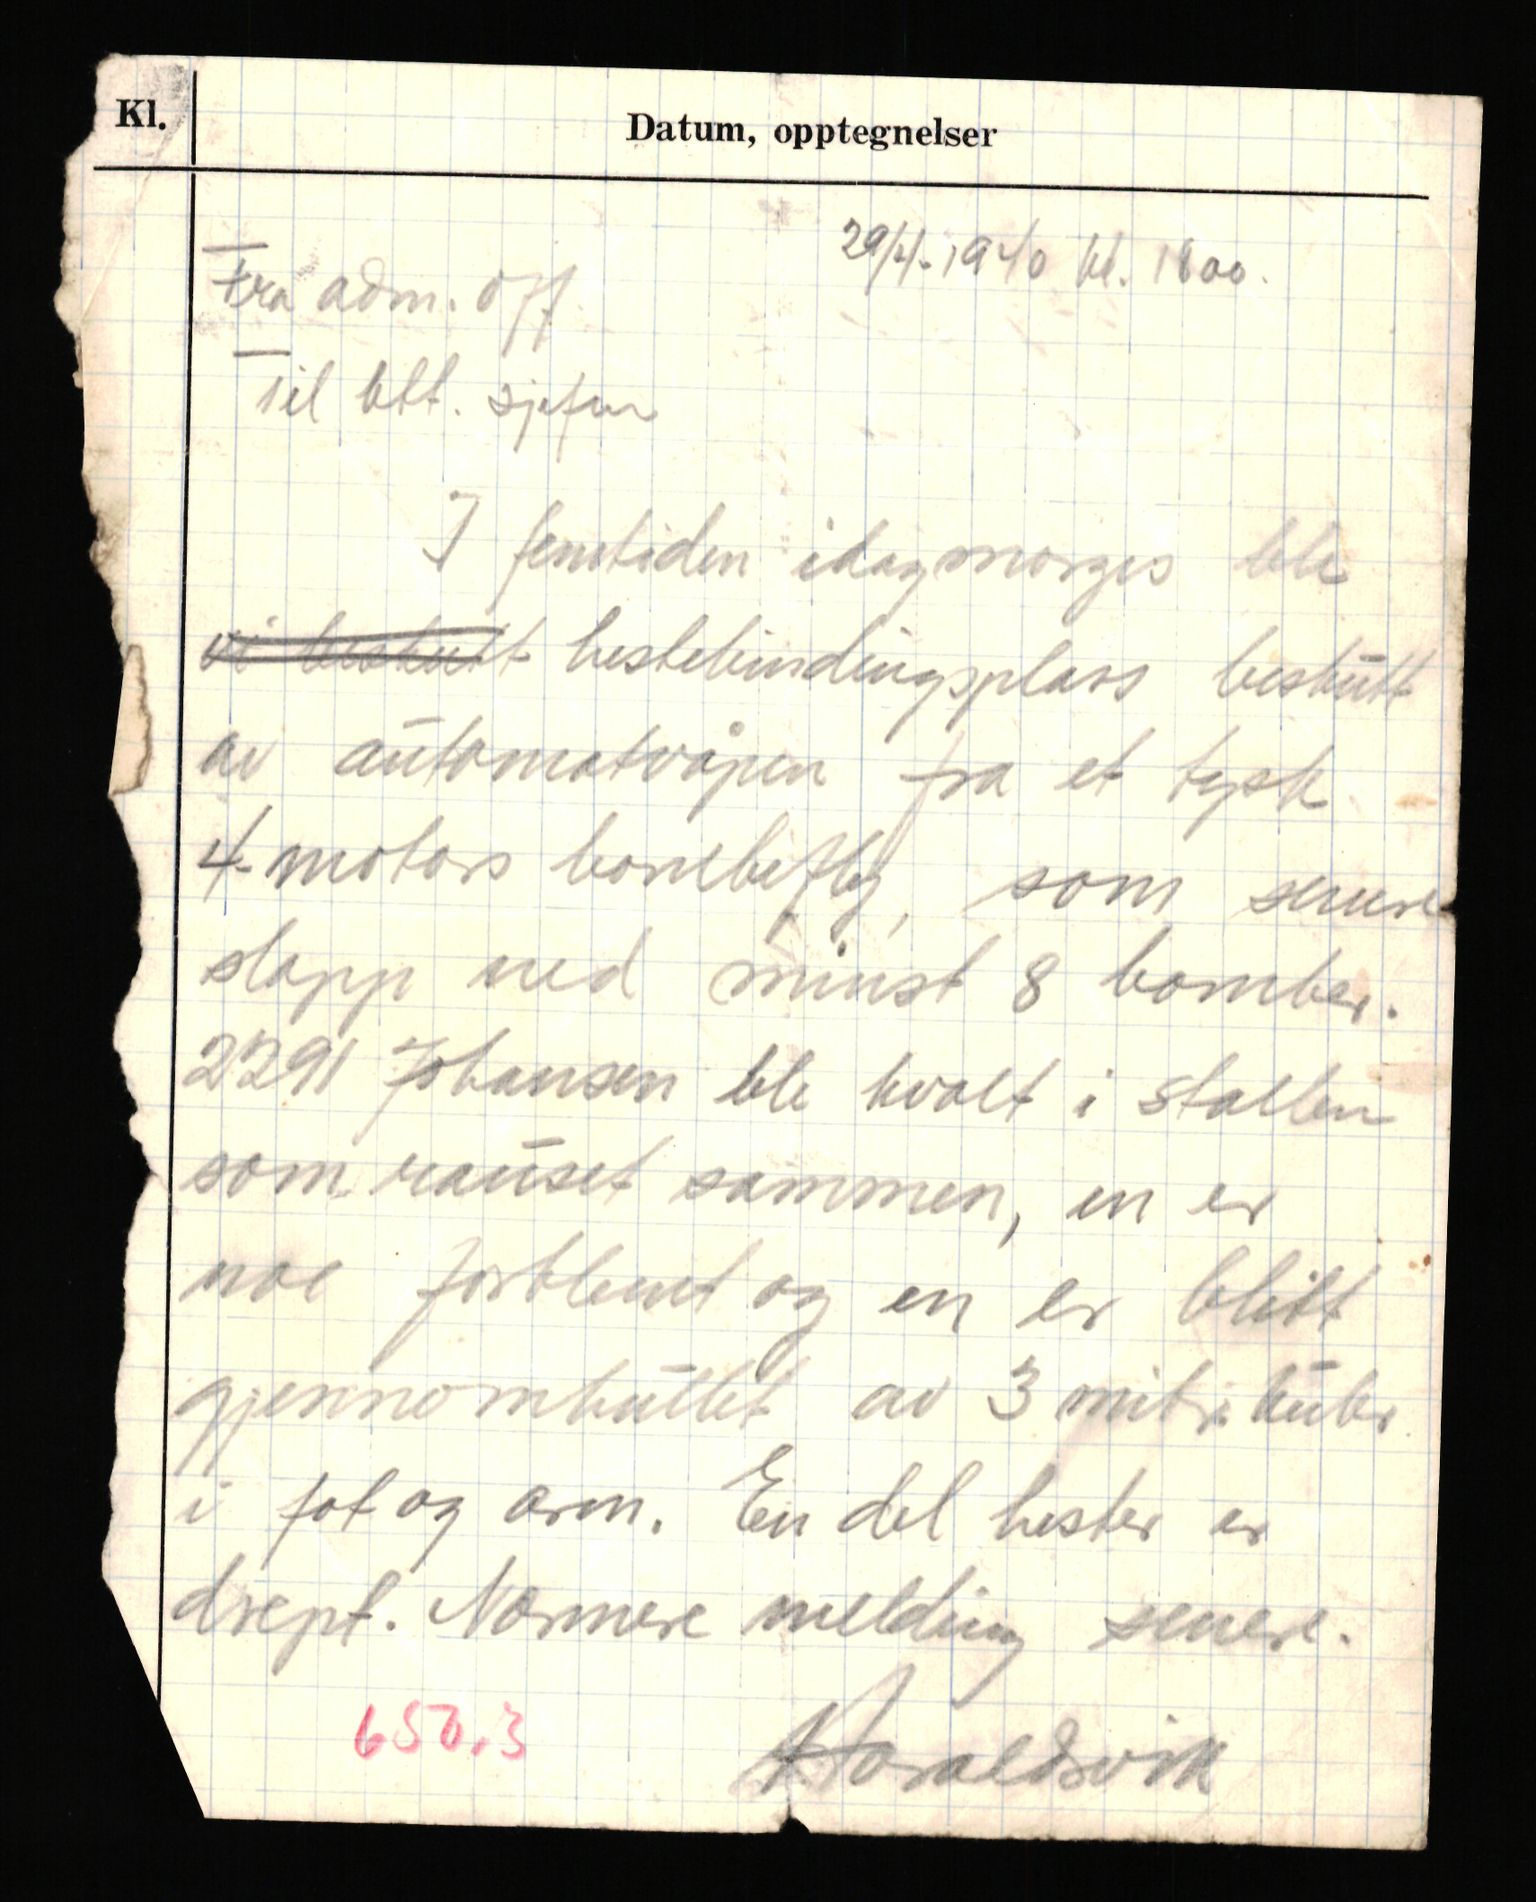 Kl.
Datum, opptegnelser
29/4.1940 kl. 1800.
Fra adm. off
Til btt. sjefen
I femtiden idagmorges ble
vi beskutt hestebindingsplass beskutt
av automatvåpen fra et tysk
4-motors bombefly, som senere
slapp ned minst 8 bomber.
2291 Johansen ble kvalt i stallen
som rauset sammen, en er
noe forklemt og en er blitt
gjennomhullet av 3 mitr. kuler
i fot og arm. En del hester er
drept. Nærmere melding senere.
Haraldsvik
650.3